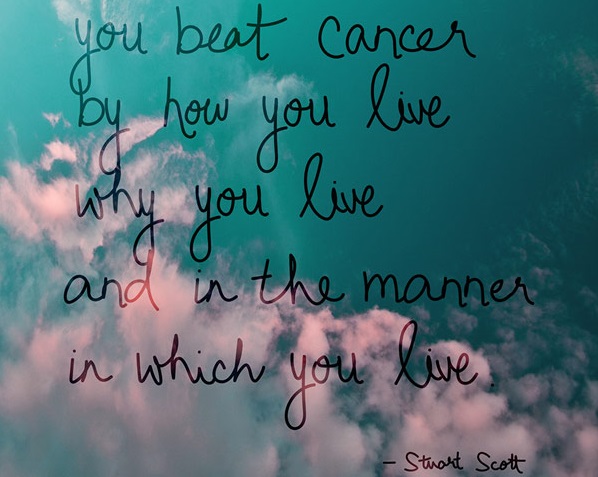 you beat cancer
by how you live
why you live
and in the manner
in which you live.
- Stuart Scott